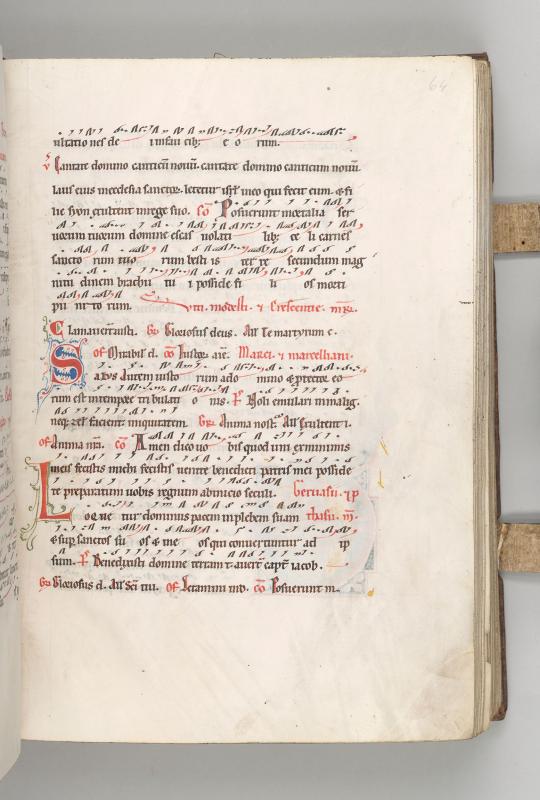 64
ultatio nes de i insau cib; e o rum.
Cantate domino canticū nouū. cantate domino canticum nouū.
laus eius in ecclesia sanctoꝝ. letetur isrł in eo qui fecit eum. ⁊ fi
lie syon exultent in rege suo. cō Posuerunt mortalia ser
uorum tuorum domine escas uolati lib; ce li carnes
sancto rum tuo rum besti is ter re secundum mag
nitu dinem brachii tu i posside fi li os morti
pu ni to rum. Viti. modesti. ⁊ Crescentie. m̄ꝝ.
Clamauerunt iusti. Gꝶ Gloriosus deus. Ałł Te martyrum c.
of Mirabił d. cō Iustoꝝ aīe. Marci. ⁊ marcelliani.
Salus autem iusto rum a do mino ⁊ protec co
rum est in tempore tri bulati o nis. P̄ Noli emulari in malig.
neqꝫ zel facient iniquitatem. Gꝶ. Anima nost̄. Ałł Exultent i.
of Anima n̄a. cō Amen dico uo bis quod uni ex minimis
meis fecistis michi fecistis uenite benedicti patris mei posside
te preparatum uobis regnum ab inicio seculi. Geruasii. ⁊ p
Loque tur dominus pacem in plebem suam thasii. m̄.
⁊ sup sanctos su os ⁊ in e os qui conuertuntur ad ip
sum. P̄ Benedixisti domine terram t. auert̄ capt̄ iacob.
Gꝶ Gloriosus d. Ałł Sc̄i tui. of Letamini in d. cō Posuerunt m.